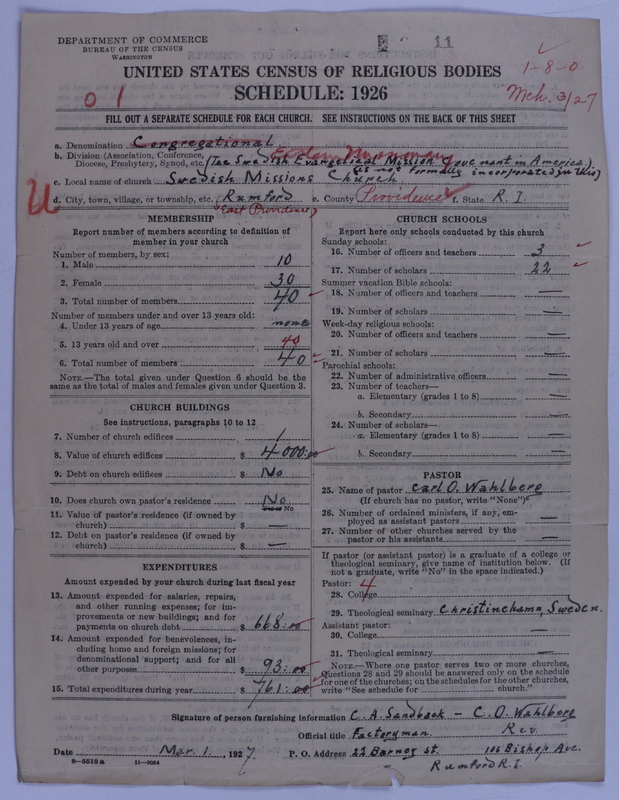 DEPARTMENT OF COMMERCE
BUREAU OF THE CENSUS
WASHINGTON
11
1-8-0
UNITED STATES CENSUS OF RELIGIOUS BODIES
SCHEDULE: 1926
Mch. 3/27
01
FILL OUT A SEPARATE SCHEDULE FOR EACH CHURCH. SEE INSTRUCTIONS ON THE BACK OF THIS SHEET
a. Denomination Congregational
b. Division (Association, Conference, Diocese, Presbytery, Synod, etc.) (The Swedish Evangelical Mission Covenant in America)
(is not formally incorporated in this)
c. Local name of church Swedish Missions Church
U
d. City, town, village, or township, etc. (Rumford e. County Providence f. State R. I.
East Providence)
MEMBERSHIP
Report number of members according to definition of
member in your church
Number of members, by sex:
1. Male 10
2. Female 30
3. Total number of members 40
Number of members under and over 13 years old:
4. Under 13 years of age none
5. 13 years old and over 40
6. Total number of members 40
NOTE.—The total given under Question 6 should be the
same as the total of males and females given under Question 3.
CHURCH BUILDINGS
See instructions, paragraphs 10 to 12
7. Number of church edifices 1
8. Value of church edifices $ 4000:00
9. Debt on church edifices $ No
10. Does church own pastor's residence No
Yes or No
11. Value of pastor's residence (if owned by
church) $ —
12. Debt on pastor's residence (if owned by
church) $ —
EXPENDITURES
Amount expended by your church during last fiscal year
13. Amount expended for salaries, repairs,
and other running expenses; for im-
provements or new buildings; and for
payments on church debt $ 668:00
14. Amount expended for benevolences, in-
cluding home and foreign missions; for
denominational support; and for all
other purposes $ 93:00
15. Total expenditures during year $ 761:00
CHURCH SCHOOLS
Report here only schools conducted by this church
Sunday schools:
16. Number of officers and teachers 3
17. Number of scholars 22
Summer vacation Bible schools:
18. Number of officers and teachers —
19. Number of scholars —
Week-day religious schools:
20. Number of officers and teachers —
21. Number of scholars —
Parochial schools:
22. Number of administrative officers —
23. Number of teachers—
a. Elementary (grades 1 to 8) —
b. Secondary —
24. Number of scholars—
a. Elementary (grades 1 to 8) —
b. Secondary —
PASTOR
25. Name of pastor Carl O. Wahlberg
(If church has no pastor, write "None")
26. Number of ordained ministers, if any, em-
ployed as assistant pastors —
27. Number of other churches served by the
pastor or his assistants —
If pastor (or assistant pastor) is a graduate of a college or
theological seminary, give name of institution below. (If
not a graduate, write "No" in the space indicated.)
Pastor: 4
28. College
29. Theological seminary Christinehamn, Sweden.
Assistant pastor:
30. College —
31. Theological seminary —
NOTE.—Where one pastor serves two or more churches,
Questions 28 and 29 should be answered only on the schedule
for one of the churches; on the schedules for the other churches,
write "See schedule for church."
Signature of person furnishing information C. A. Sandback – C. O. Wahlberg
Official title Factoryman Rev.
Date Mar. 1. 1927. P. O. Address 22 Barney St. 106 Bishop Ave.
8—5518a 11—9034 Rumford R. I.